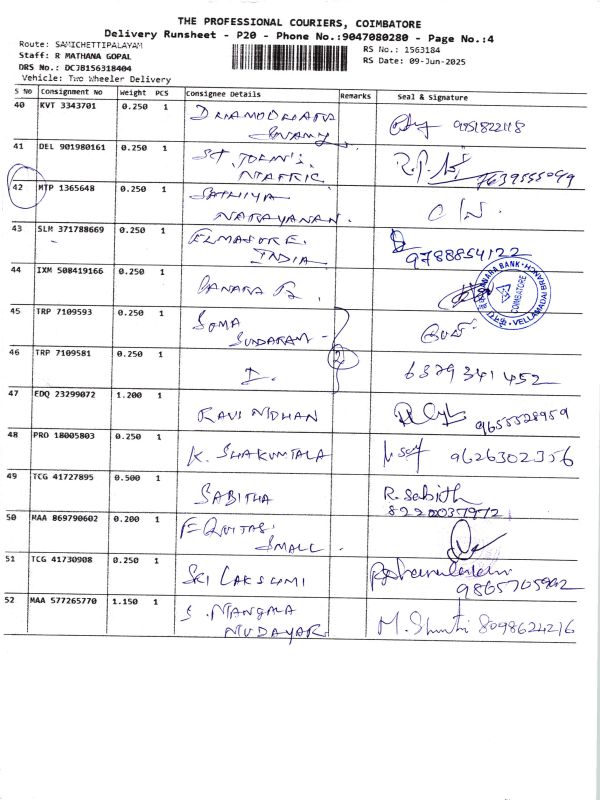 THE PROFESSIONAL COURIERS, COIMBATORE
Delivery Runsheet - P20 - Phone No.:9047080280 - Page No.:4
Route: SAMICHETTIPALAYAM
RS No.: 1563184
Staff: R MATHANA GOPAL
RS Date: 09-Jun-2025
DRS No.: DCJB156318404
Vehicle: Two Wheeler Delivery
S No Consignment No Weight PCS Consignee Details Remarks Seal & Signature
40 KVT 3343701 0.250 1
9951822118
41 DEL 901980161 0.250 1 ST. JOHN'S
TRAFFIC
42 MTP 1365648 0.250 1 SATHIYA
NARAYANAN.
43 SLM 371788669 0.250 1
INDIA 9788854122
44 IXM 508419166 0.250 1 CANARA B.
CANARA BANK
COIMBATORE
45 TRP 7109593 0.250 1 SOMA
SUNDARAM
2
46 TRP 7109581 0.250 1 6379341452
47 EDQ 23299072 1.200 1 RAVI NDHAN 9655528959
48 PRO 18005803 0.250 1 K. SHAKUNTALA 9626302356
49 TCG 41727895 0.500 1 SABITHA R. Sabith
50 MAA 869790602 0.200 1 EQUITAS.
SMALL.
51 TCG 41730908 0.250 1 SRI LAKSHMI
52 MAA 577265770 1.150 1 S. MANGALA
MUDAYAR M. Shruti 8098624216